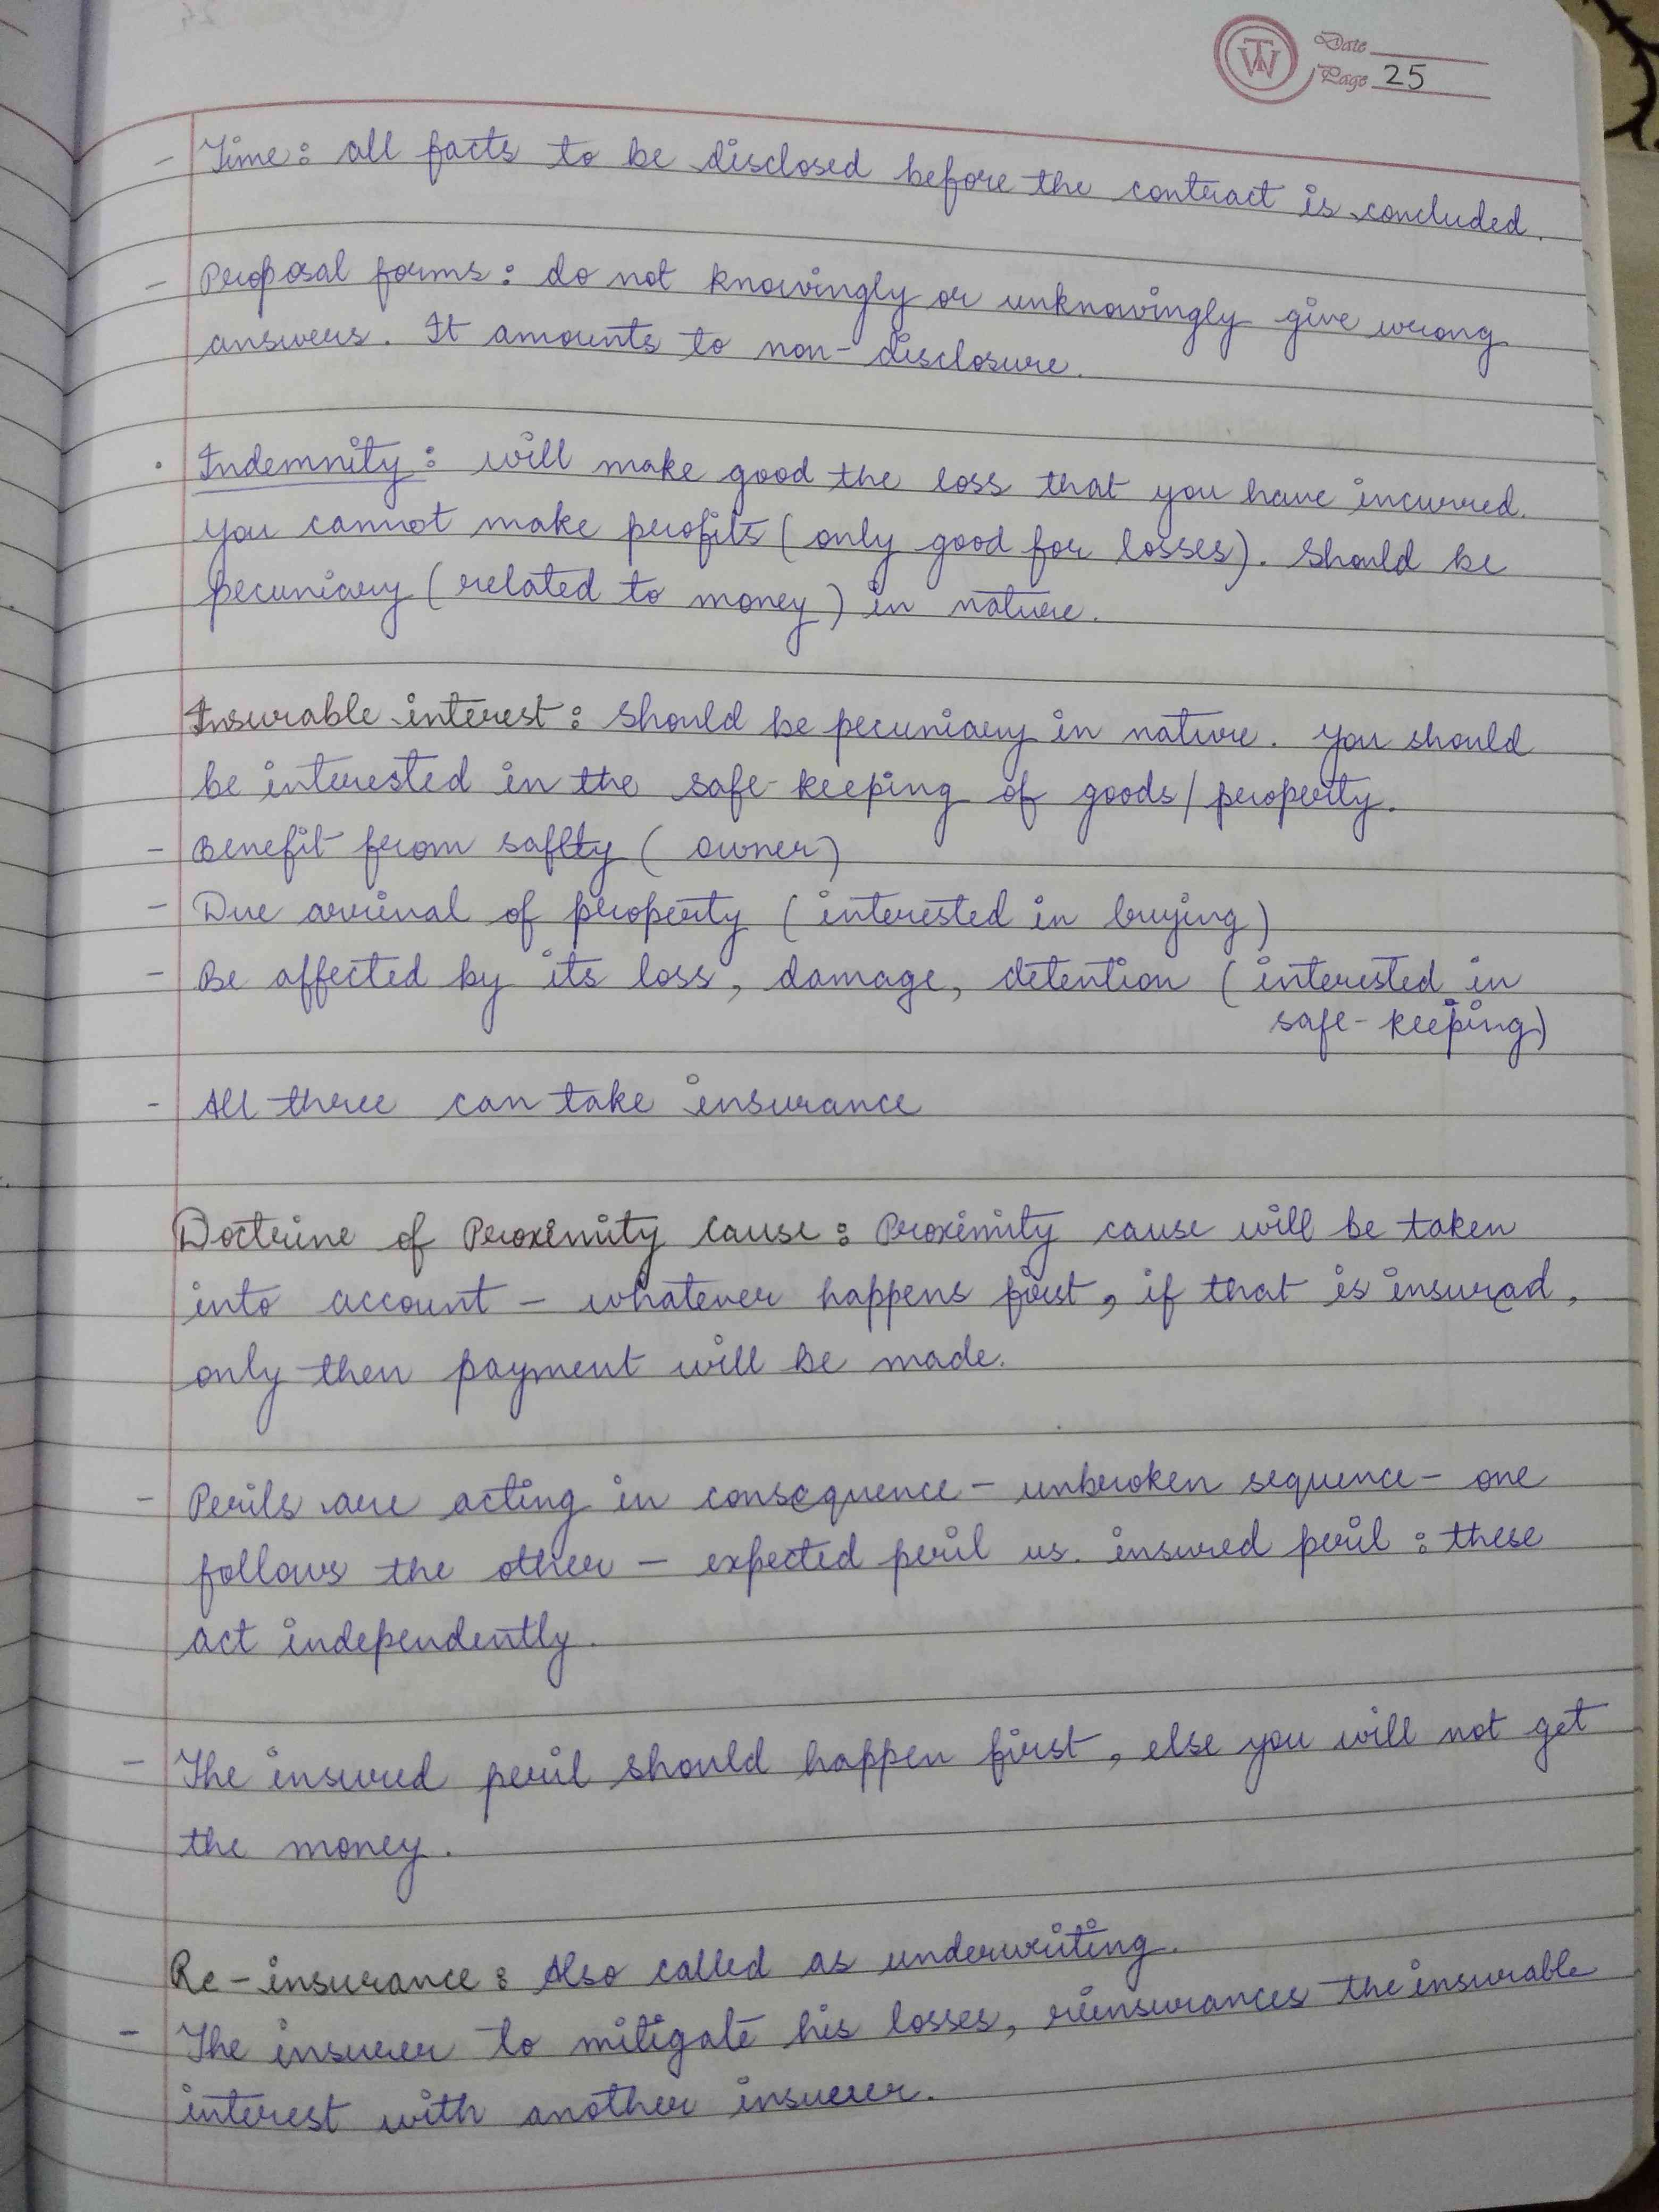 TW
Date
Page 25
- Time: all facts to be disclosed before the contract is concluded.
- Proposal forms: do not knowingly or unknowingly give wrong
answers. It amounts to non-disclosure.
· Indemnity: will make good the loss that you have incurred.
You cannot make profits (only good for losses). Should be
pecuniary (related to money) in nature.
Insurable interest: should be pecuniary in nature. You should
be interested in the safe-keeping of goods/property.
- Benefit from saflty (owner)
- Due arrival of property (interested in buying)
- Be affected by its loss, damage, detention (interested in
safe-keeping)
- All three can take insurance
Doctrine of Proximity cause: Proximity cause will be taken
into account - whatever happens first, if that is insurad,
only then payment will be made.
- Perils are acting in consequence - unbroken sequence - one
follows the other - expected peril vs. insured peril: these
act independently.
- The insured peril should happen first, else you will not get
the money.
Re-insurance: Also called as underwriting.
- The insurer to mitigate his losses, reinsurances the insurable
interest with another insurer.